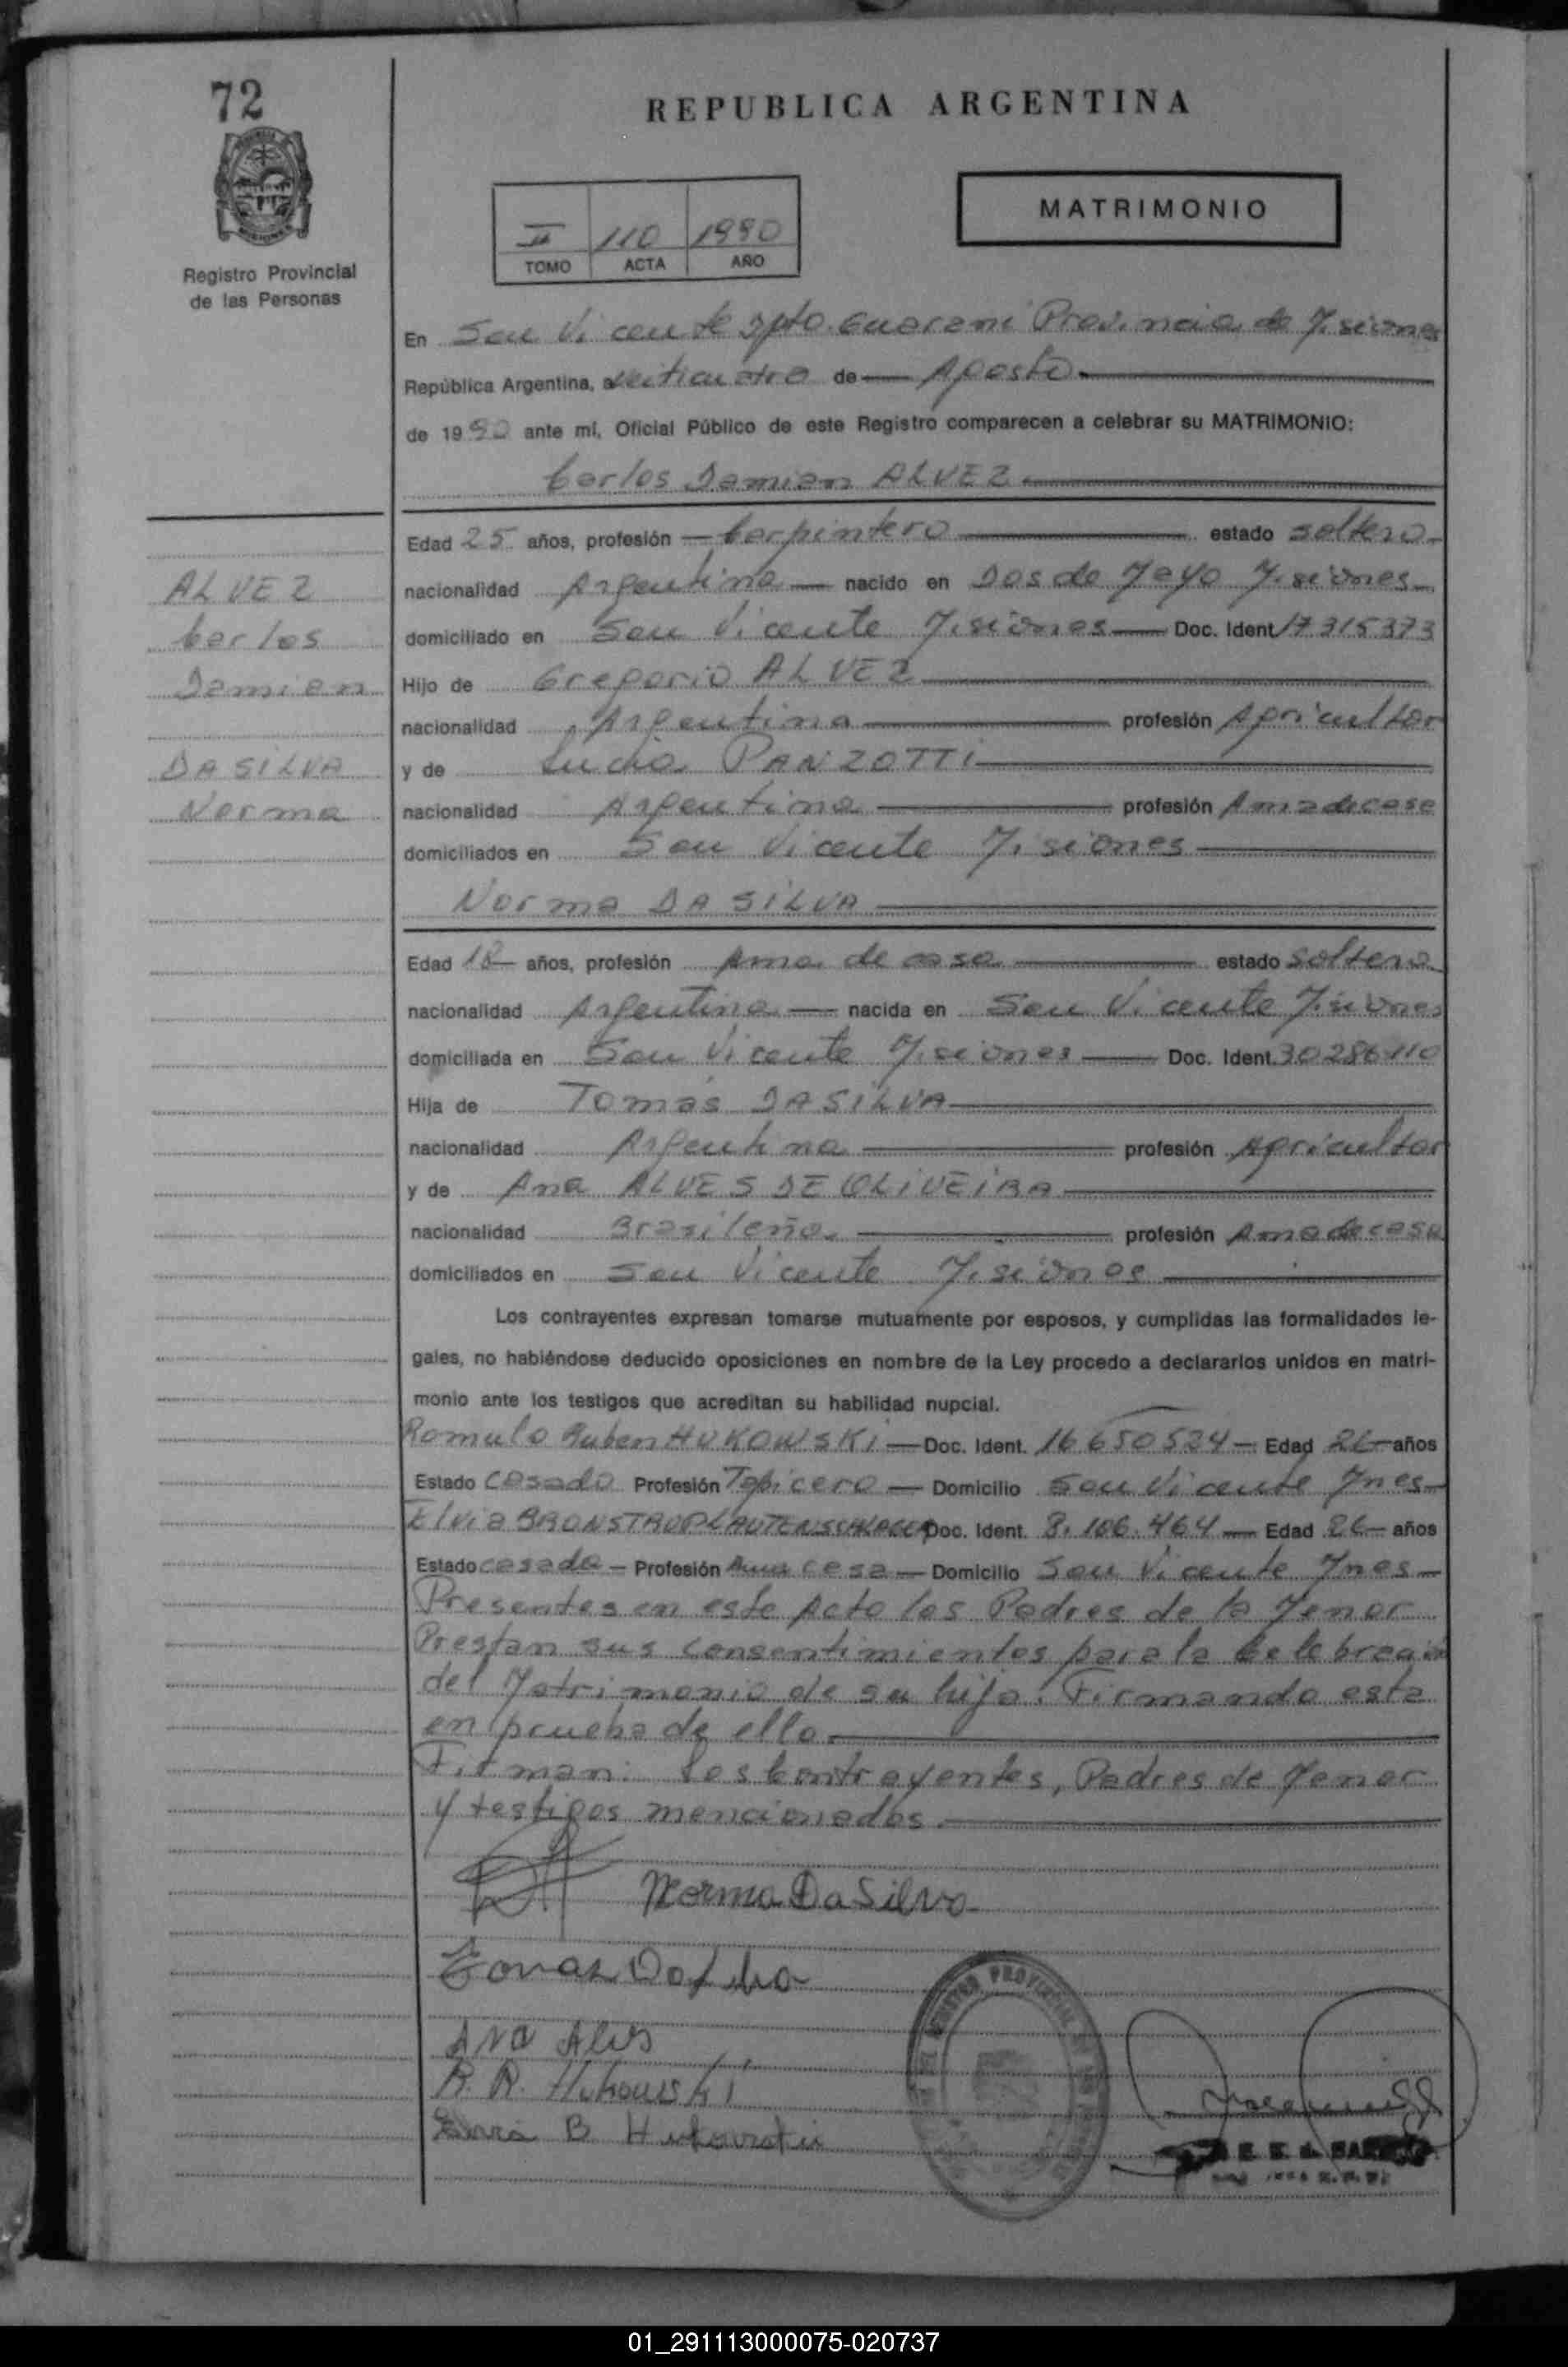 72
REPUBLICA ARGENTINA
MATRIMONIO
II 110 1990
TOMO ACTA AÑO
Registro Provincial
de las Personas
En San Vicente Dpto. Guarani Provincia de Misiones
República Argentina, a veiticuatro de Agosto
de 1990 ante mí, Oficial Público de este Registro comparecen a celebrar su MATRIMONIO:
Carlos Damian ALVEZ
Edad 25 años, profesión Carpintero estado soltero
ALVEZ
Carlos
Damian
DA SILVA
Norma
nacionalidad Argentina nacido en Dos de Mayo Misiones
domiciliado en San Vicente Misiones Doc. Ident 17315373
Hijo de Gregorio ALVEZ
nacionalidad Argentina profesión Agricultor
y de Lucia PANZOTTI
nacionalidad Argentina profesión Ama de casa
domiciliados en San Vicente Misiones
Norma DA SILVA
Edad 18 años, profesión Ama de casa estado soltera
nacionalidad Argentina nacida en San Vicente Misiones
domiciliada en San Vicente Misiones Doc. Ident. 30286110
Hija de Tomás DA SILVA
nacionalidad Argentina profesión Agricultor
y de Ana ALVES DE OLIVEIRA
nacionalidad Brasileña profesión Ama de casa
domiciliados en San Vicente Misiones
Los contrayentes expresan tomarse mutuamente por esposos, y cumplidas las formalidades le-
gales, no habiéndose deducido oposiciones en nombre de la Ley procedo a declararlos unidos en matri-
monio ante los testigos que acreditan su habilidad nupcial.
Romulo Ruben HUKOWSKI Doc. Ident. 16650524 Edad 26 años
Estado casado Profesión Tapicero Domicilio San Vicente Mnes
Elvia BRONSTRUP LAUTENSCHLAGER Doc. Ident. 8.106.464 Edad 26 años
Estado casada Profesión Ama casa Domicilio San Vicente Mnes
Presentes en este Acto los Padres de la Menor
Prestan sus consentimientos para la Celebracion
del Matrimonio de su hija. Firmando esta
en prueba de ello
Firman: Los Contrayentes, Padres de Menor
y testigos mencionados
Norma Da Silva
Tomaz Da Silva
Ana Alves
R. R. Hukowski
B Hukowski
01_291113000075-020737